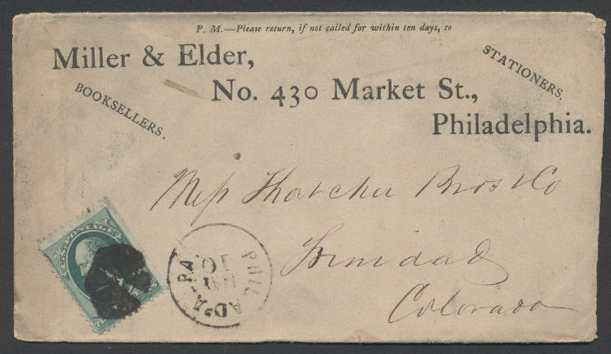 P. M.—Please return, if not called for within ten days, to
Miller & Elder,
BOOKSELLERS.
STATIONERS.
No. 430 Market St.,
Philadelphia.
Mess Thatcher Bros & Co
Trinidad
Colorado
PHILAD'A. PA.
10
POSTAGE